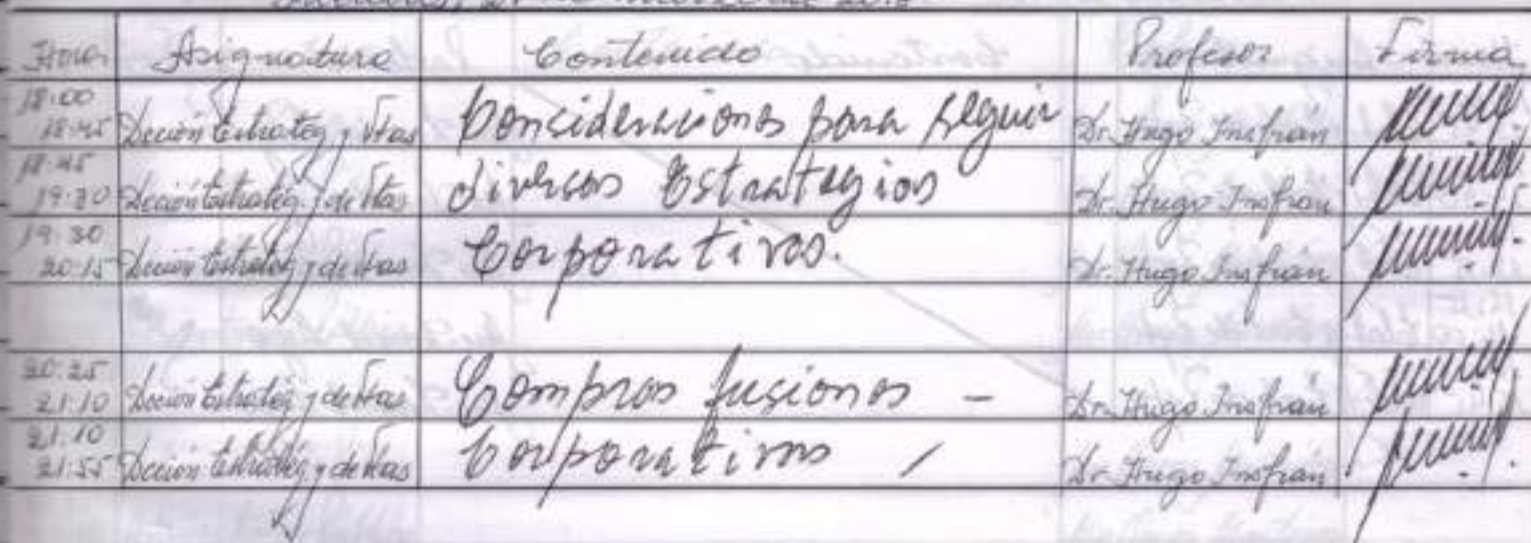 Hora Asignatura Contenido Profesor Firma
18:00
18:45 Dección Estratég y Vtas Consideraciones para seguir Dr. Hugo Insfrán
18:45
19:30 Dección Estratég. y de Vtas diversas Estrategias Dr. Hugo Insfrán
19:30
20:15 Dección Estratég y de Vtas Corporativas. Dr. Hugo Insfrán
20:25
21:10 Dección Estratég y de Vtas Compras fusiones - Dr. Hugo Insfrán
21:10
21:55 Dección Estratég y de Vtas Corporativos / Dr. Hugo Insfrán